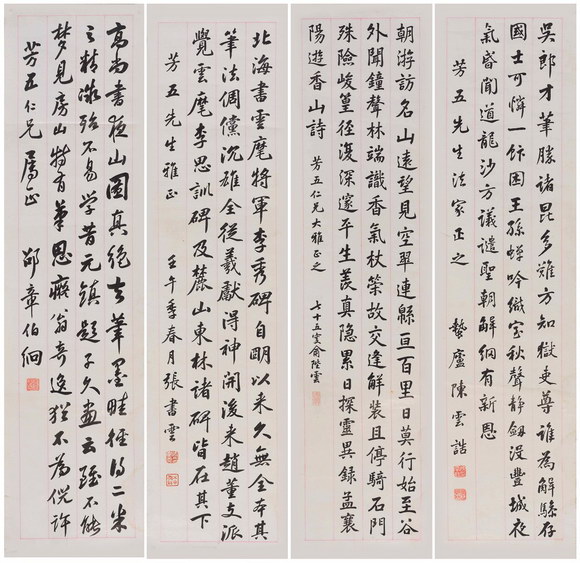 吳郎才筆勝諸昆多難方知獄吏尊誰為解驂存
國士可憐一飯困王孫蟬吟織室秋聲靜劒沒豐城夜
氣昏聞道龍沙方議譴聖朝解網有新恩
芳五先生法家正之 蟄廬陳雲誥
朝游訪名山遠望見空翠連緜亘百里日莫行始至谷
外聞鐘聲林端識香氣杖策故交逢解裝且停騎石門
殊險峻篁徑復深邃平生羨真隱累日探靈異錄孟襄
陽遊香山詩 芳五仁兄大雅正之 七十五叟俞陛雲
北海書雲麾將軍李秀碑自明以來久無全本其
筆法倜儻沉雄全從羲獻得神開後來趙董支派
覺雲麾李思訓碑及麓山東林諸碑皆在其下
芳五先生雅正 壬午季春月張書雲
高尚書夜山圖真絕去筆墨畦徑得二米
之精微殆不易學昔元鎮題子久畫云雖不能
夢見房山特有筆思癡翁奇逸猶不為倪許
芳五仁兄屬正 邵章伯絅